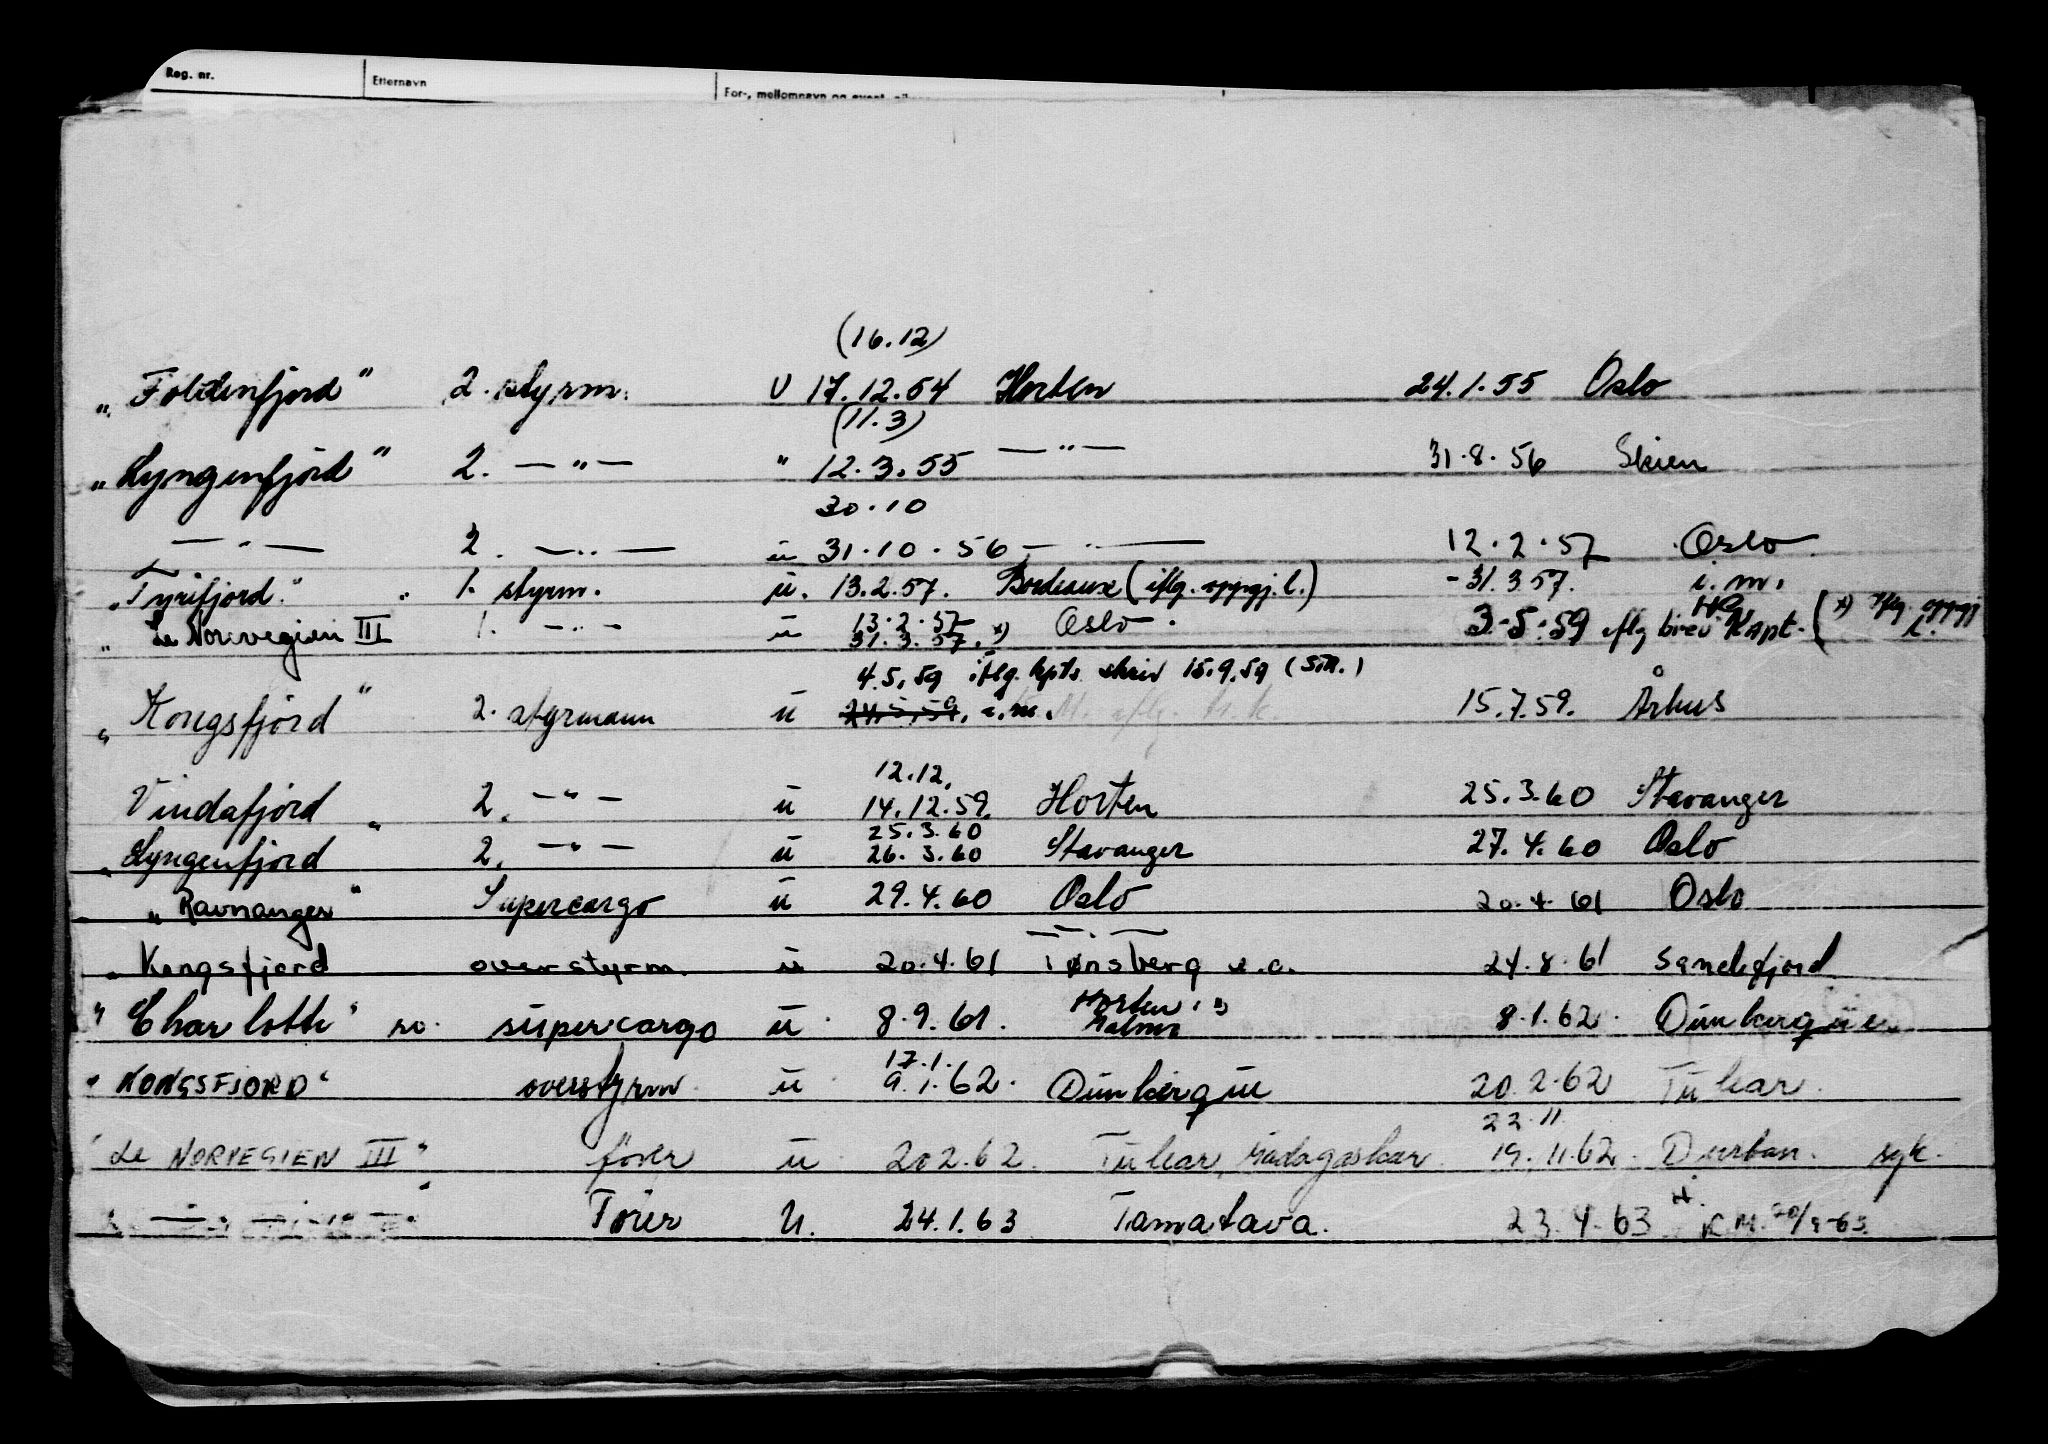 Reg. nr. Etternavn For-, mellomnavn og event.
(16.12)
„Foldenfjord" 2. styrm. U 17.12.54 Horten 24.1.55 Oslo
(11.3)
„Lyngenfjord" 2. — " — " 12.3.55 — " — 31.8.56 Skien
30.10
— " — 2. — " — u 31.10.56 — " — 12.2.57 Oslo
„Tyrifjord." 1. styrm. u. 13.2.57. Bordeaux (iflg. oppgj. l.) -31.3 57. i. m.
13.2.57
„Le Norvegien III 1. — " — u 31.3.57. x) Oslo. 3.5.59 iflg brev Kapt. (x) iflg. oppgj l.
4.5.59 iflg. kpts skriv 15.9.59
„Kongsfjord" 2. styrmann u 24.5.59. i.m. 15.7.59. Århus
12.12.
Vindafjord „ 2. — " — u 14.12.59. Horten 25.3.60 Stavanger
25.3.60
„Lyngenfjord 2. — " — u 26.3.60 Stavanger 27.4.60 Oslo
„Ravnanger" Supercargo u 29.4.60 Oslo 20.4.61 Oslo
— " —
„Kongsfjord overstyrm. u 20.4.61 Tønsberg 24.8.61 Sandefjord
Horten
"Charlotte" supercargo u 8.9.61. Malmø 8.1.62. Dunkerque
17.1.
"KONGSFJORD" overstyrm u 9.1.62. Dunkerque 20.2.62 Tulear.
22.11
"Le NORVEGIEN III" fører u 20.2.62. Tulear, Madagaskar 19.11.62. Durban. syk.
— " — Fører U. 24.1.63 Tamatava. 23.4.63 K.M. 20/9-63.